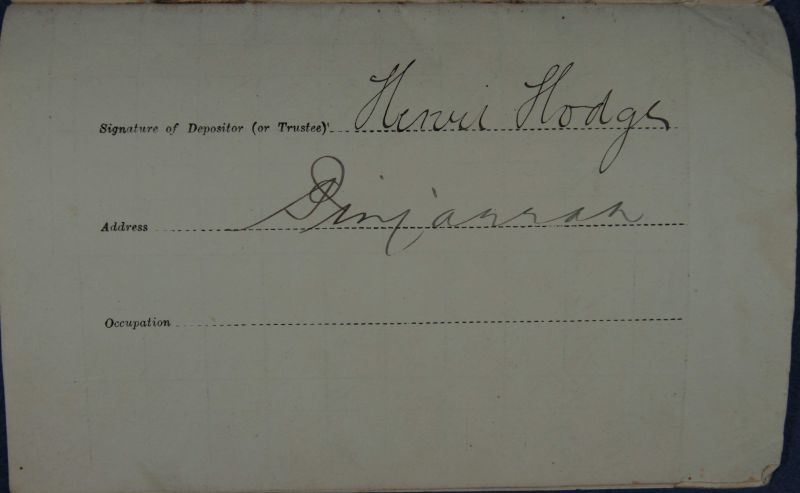 Signature of Depositor (or Trustee) Henri Hodge
Address Pinjarrah
Occupation